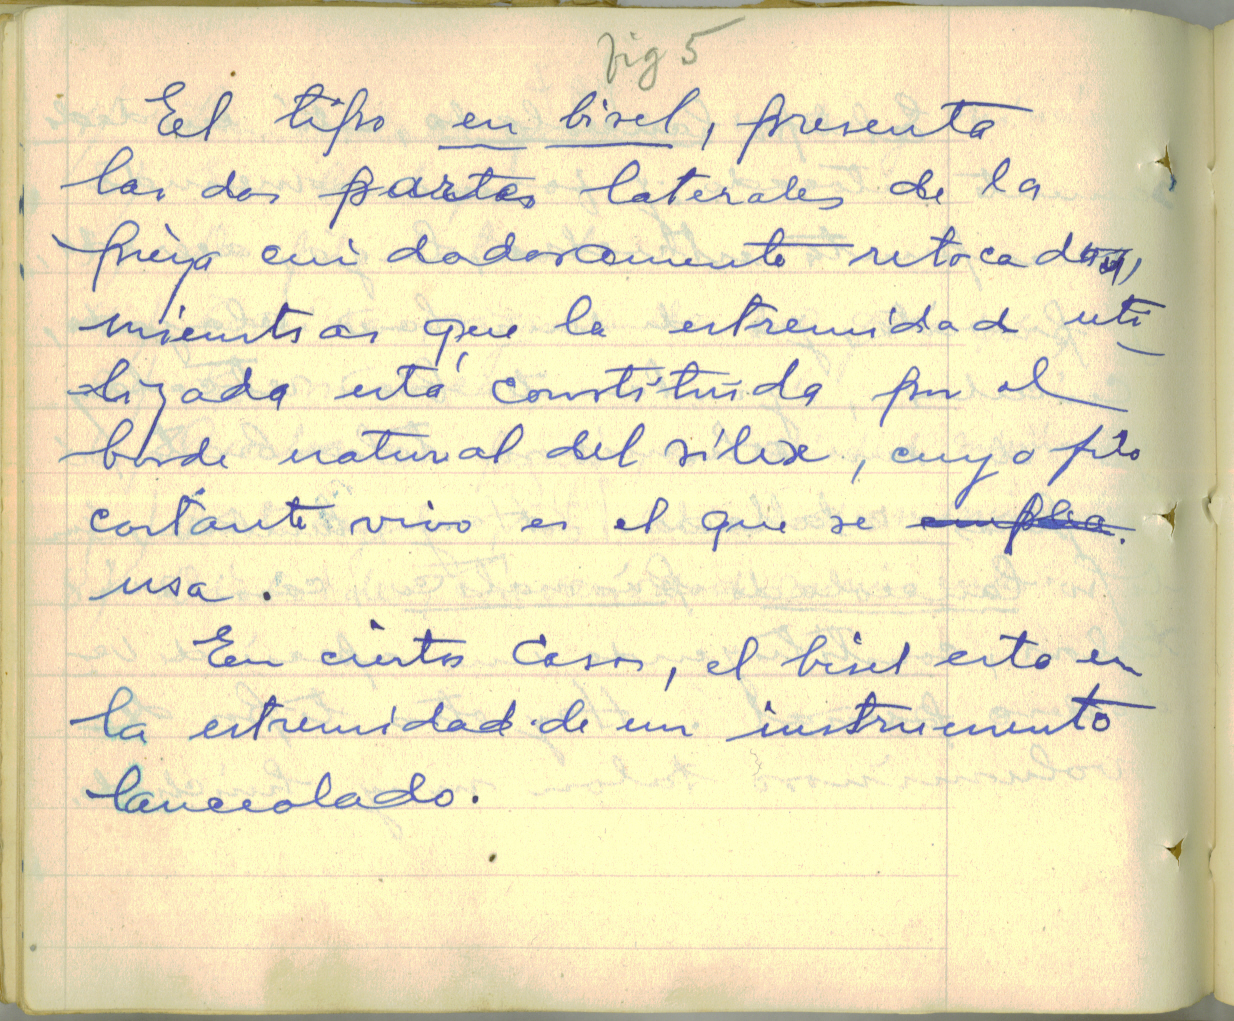 fig 5
El tipo en bisel, presenta
las dos partes laterales de la
pieza cuidadosamente retocadas,
mientras que la estremidad uti
lizada está constituida por el
borde natural del silex, cuyo filo
cortante vivo es el que se emplea.
usa.
En ciertos casos, el bisel esta en
la estremidad de un instrumento
lanceolado.